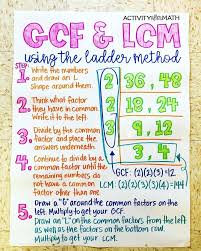 ACTIVITYAFTERMATH
GCF & LCM
using the ladder method
STEP
1. Write the numbers
and draw an L
shape around them.
2 36, 48
2. Think what factor
they have in common
Write it to the left.
2 18, 24
3. Divide by the common
factor and place the
answers underneath.
3 9, 12
4. Continue to divide by a
common factor until the
remaining numbers do
not have a common
factor other than one.
3, 4
GCF: (2)(2)(3)=12
LCM: (2)(2)(3)(3)(4)=144
5. Draw a "G" around the common factors on the
left. Multiply to get your GCF.
Draw an "L" on the common factors from the left
as well as the factors on the bottom row.
Multiply to get your LCM.